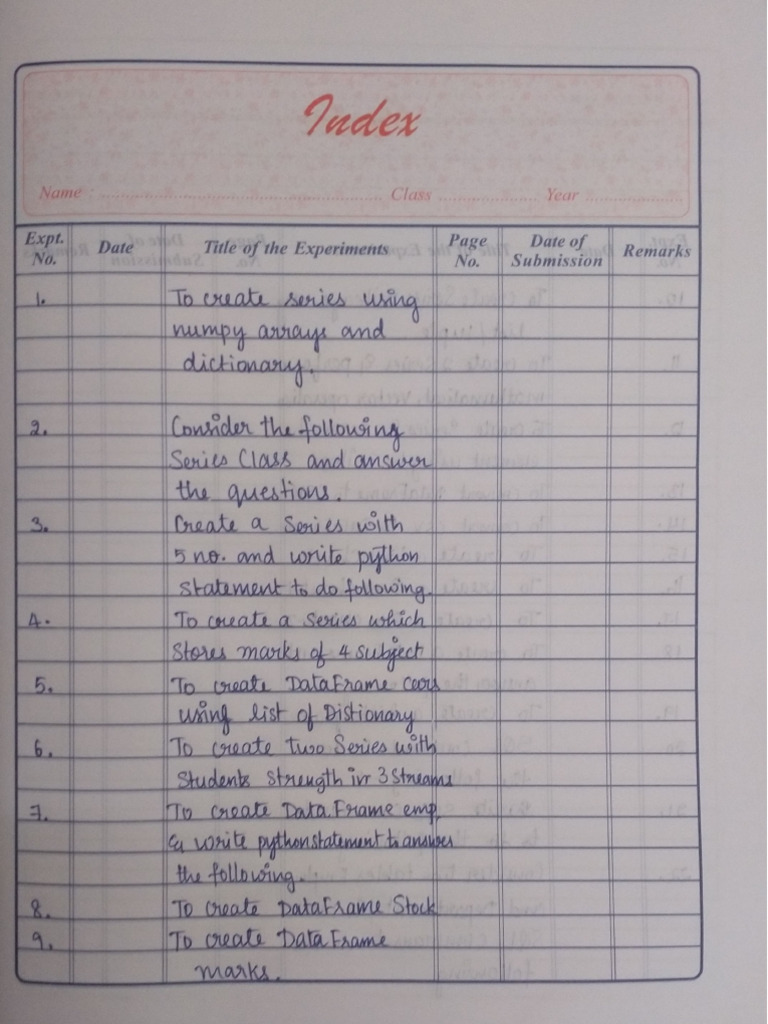 Index
Name : ........................ Class .................... Year ....................
Expt. No. Date Title of the Experiments Page No. Date of Submission Remarks
1. To create series using
numpy arrays and
dictionary.
2. Consider the following
Series Class and answer
the questions.
3. Create a Series with
5 no. and write python
statement to do following.
4. To create a Series which
Stores marks of 4 subject
5. To create DataFrame cars
using list of Distionary
6. To create two Series with
Students Strength in 3 Streams
7. To create Data.Frame emp
& write python statement to answer
the following.
8. To create DataFrame Stock
9. To create DataFrame
marks.